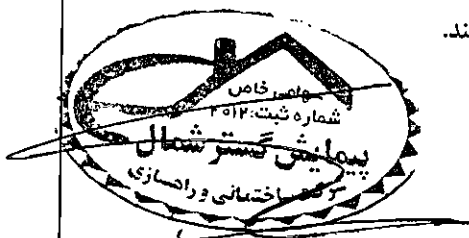 ند.
سهامی خاص
شماره ثبت: ۲۰۱۲
پیمایش گستر شمال
شرکت ساختمانی و راهسازی